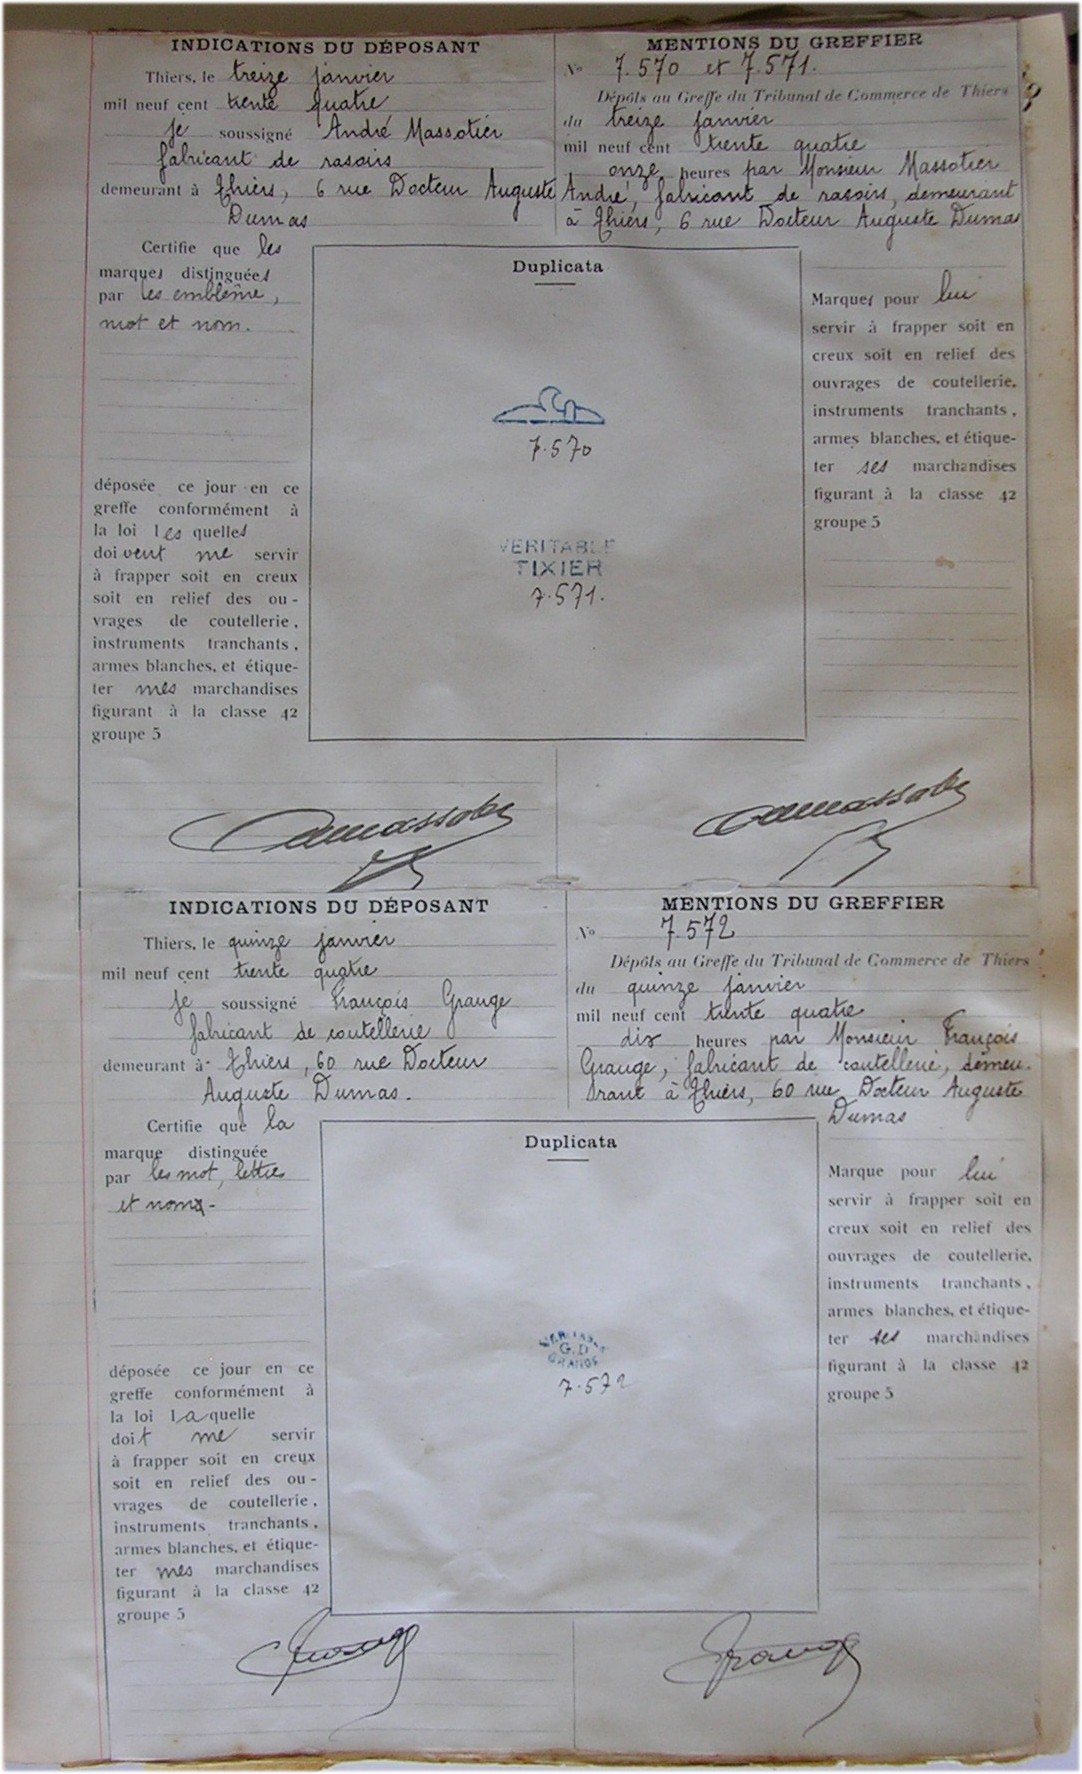 INDICATIONS DU DÉPOSANT
Thiers, le treize janvier
mil neuf cent trente quatre
je soussigné André Massotier
fabricant de rasoirs
demeurant à Thiers, 6 rue Docteur Auguste
Dumas
MENTIONS DU GREFFIER
No 7.570 et 7.571.
Dépôts au Greffe du Tribunal de Commerce de Thiers
du treize janvier
mil neuf cent trente quatre
onze heures par Monsieur Massotier
André, fabricant de rasoirs, demeurant
à Thiers, 6 rue Docteur Auguste Dumas
Certifie que les
marques distinguées
par les emblême,
mot et nom.
déposée ce jour en ce
greffe conformément à
la loi les quelles
doivent me servir
à frapper soit en creux
soit en relief des ou-
vrages de coutellerie,
instruments tranchants,
armes blanches, et étique-
ter mes marchandises
figurant à la classe 42
groupe 5
Duplicata
7.570
VERITABLE
TIXIER
7.571.
Marques pour lui
servir à frapper soit en
creux soit en relief des
ouvrages de coutellerie,
instruments tranchants,
armes blanches, et étique-
ter ses marchandises
figurant à la classe 42
groupe 5
INDICATIONS DU DÉPOSANT
Thiers, le quinze janvier
mil neuf cent trente quatre
je soussigné François Grange
fabricant de coutellerie
demeurant à Thiers, 60 rue Docteur
Auguste Dumas.
MENTIONS DU GREFFIER
No 7.572
Dépôts au Greffe du Tribunal de Commerce de Thiers
du quinze janvier
mil neuf cent trente quatre
dix heures par Monsieur François
Grange, fabricant de coutellerie, demeu-
rant à Thiers, 60 rue Docteur Auguste
Dumas
Certifie que la
marque distinguée
par les mot, lettres
et nom -
déposée ce jour en ce
greffe conformément à
la loi laquelle
doit me servir
à frapper soit en creux
soit en relief des ou-
vrages de coutellerie,
instruments tranchants,
armes blanches, et étique-
ter mes marchandises
figurant à la classe 42
groupe 5
Duplicata
G.D
GRANGE
7.572
Marque pour lui
servir à frapper soit en
creux soit en relief des
ouvrages de coutellerie,
instruments tranchants,
armes blanches, et étique-
ter ses marchandises
figurant à la classe 42
groupe 5